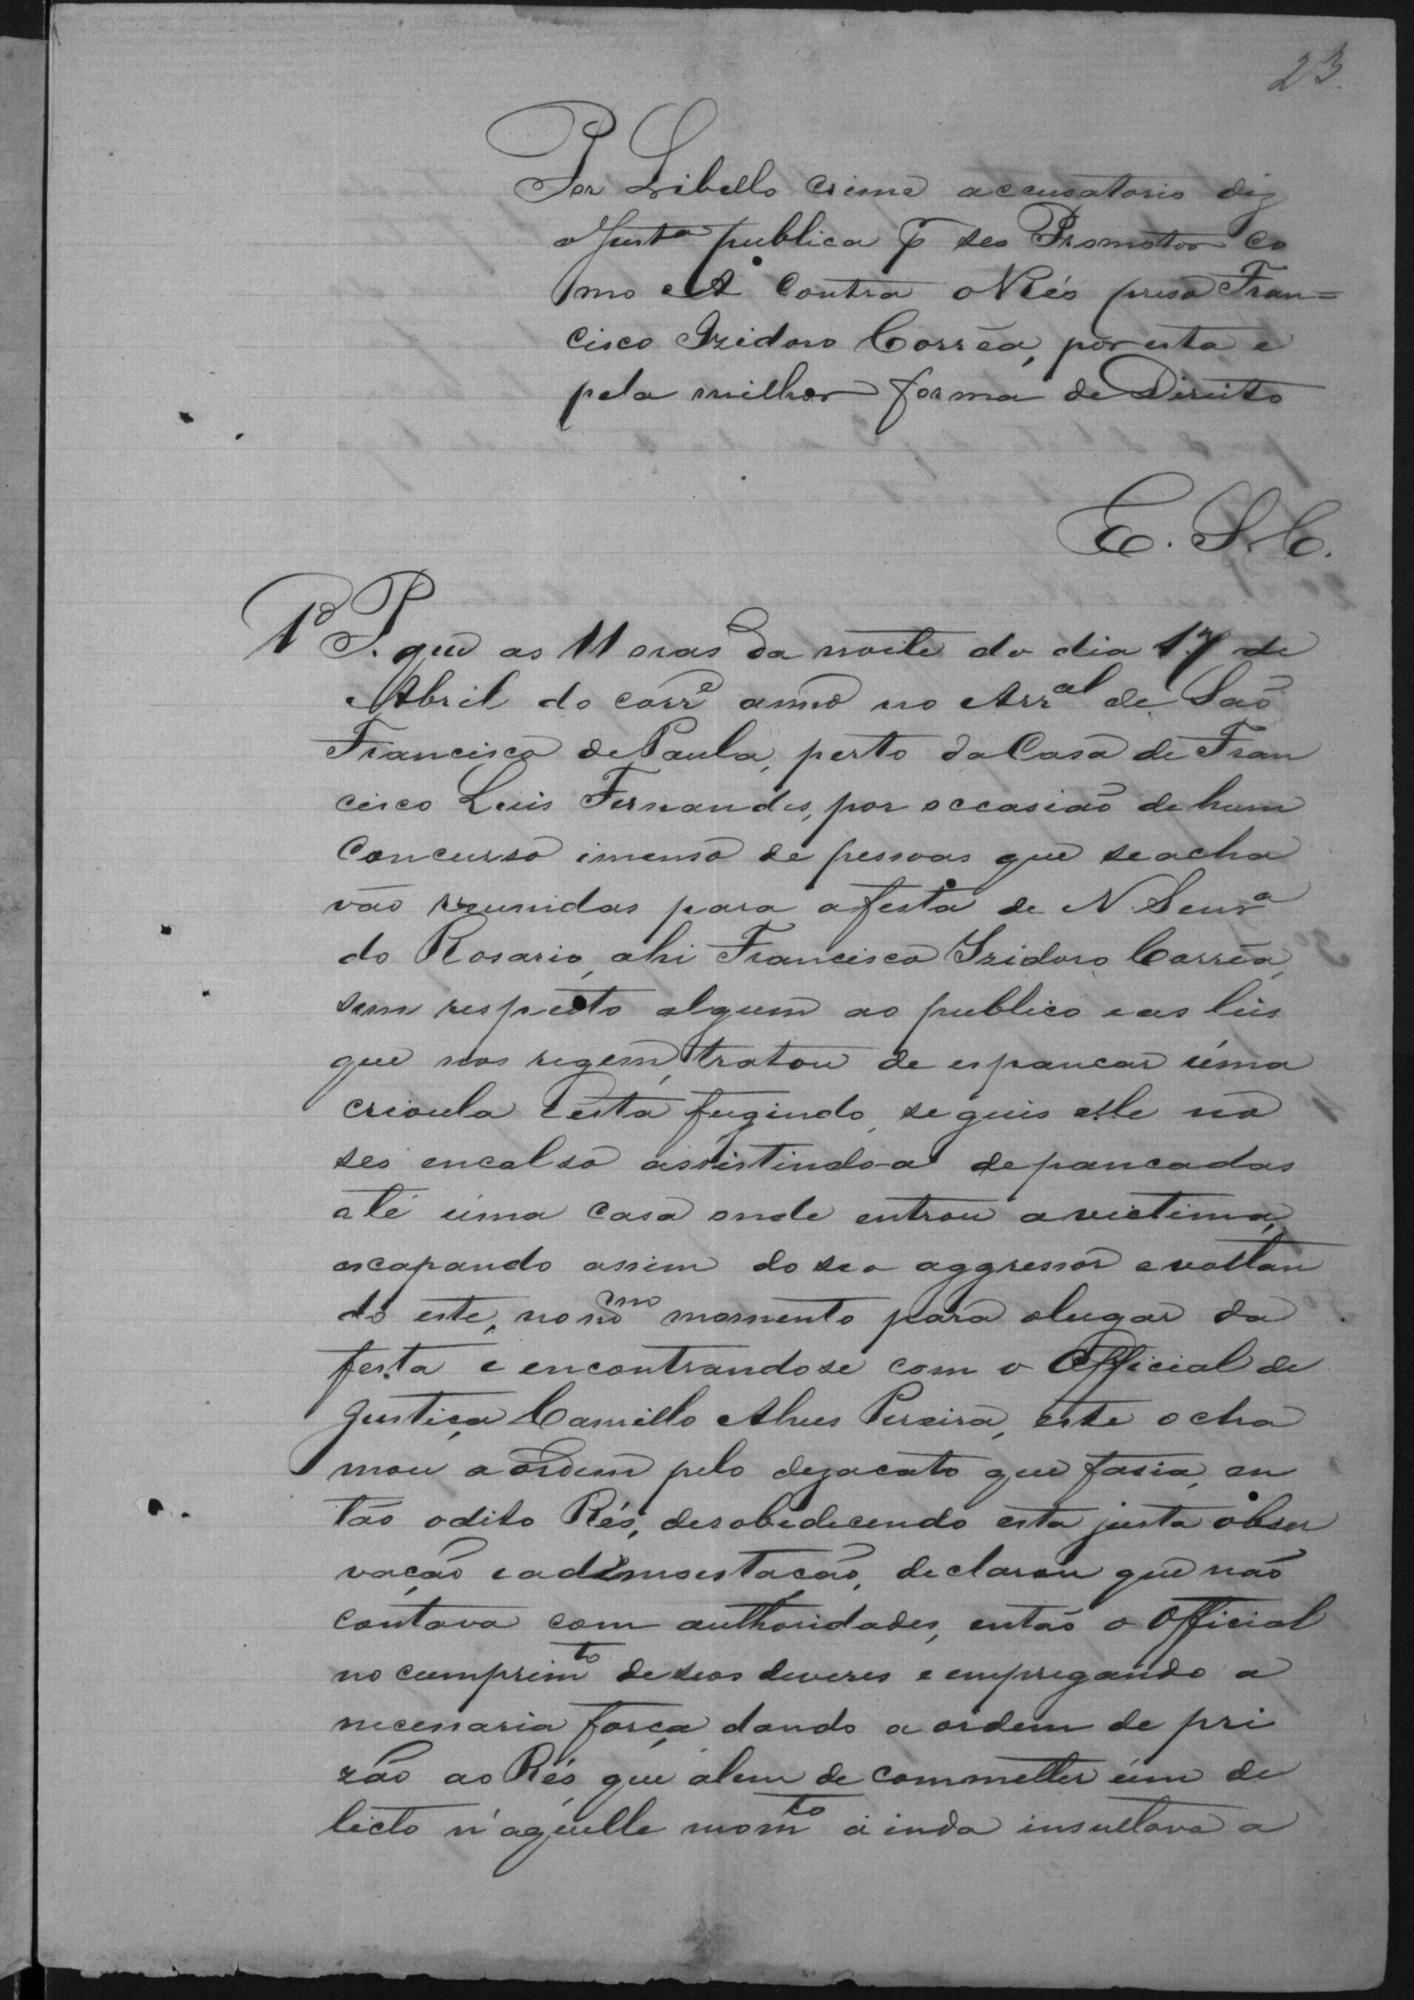 23.
Por Libello crime accusatorio diz
a Justa publica p seo Promotor co
mo A. contra o Réo preso Fran=
cisco Izidoro Corrêa, por esta e
pela milhor forma de Direito
E. S. C.
1º P. que as 11 oras da noite do dia 17 de
Abril do corre anno no Arral de São
Francisco de Paula, perto da Casa de Fran
cisco Luis Fernandes, por occasião de hum
concurso imenso de pessoas que se acha
vão reunidas para a festa de N. Senra
do Rosario, ahi Francisco Izidoro Corrêa,
sem respeito algum ao publico e as leis
que nos regem, tratou de espancar uma
crioula e esta fugindo, seguis elle no
seo encalso assistindo-a de pancadas
até uma casa onde entrou a victima,
escapando assim do seo aggressor e voltan
do este, no mmo momento para o lugar da
festa e encontrando se com o Official de
Justiça Camillo Alves Pereira, este o cha
mou a ordem pelo dezacato que fasia, en
tão o dito Réo, desobedecendo esta justa obser
vação e admoestação, declarou que não
contava com authoridades, então o Official
no cumprimto de seos deveres e empregando a
necessaria força dando a ordem de pri
zão ao Réo que alem de commetter um de
licto n'aquelle momto ainda insultava a